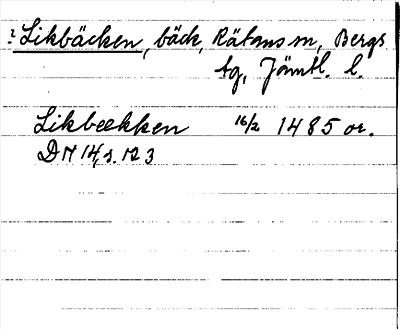 ? Likbäcken, bäck, Rätans sn, Bergs
tg, Jämtl. l.
Likbeckken 16/2 1485 or.
DN 14, s. 123